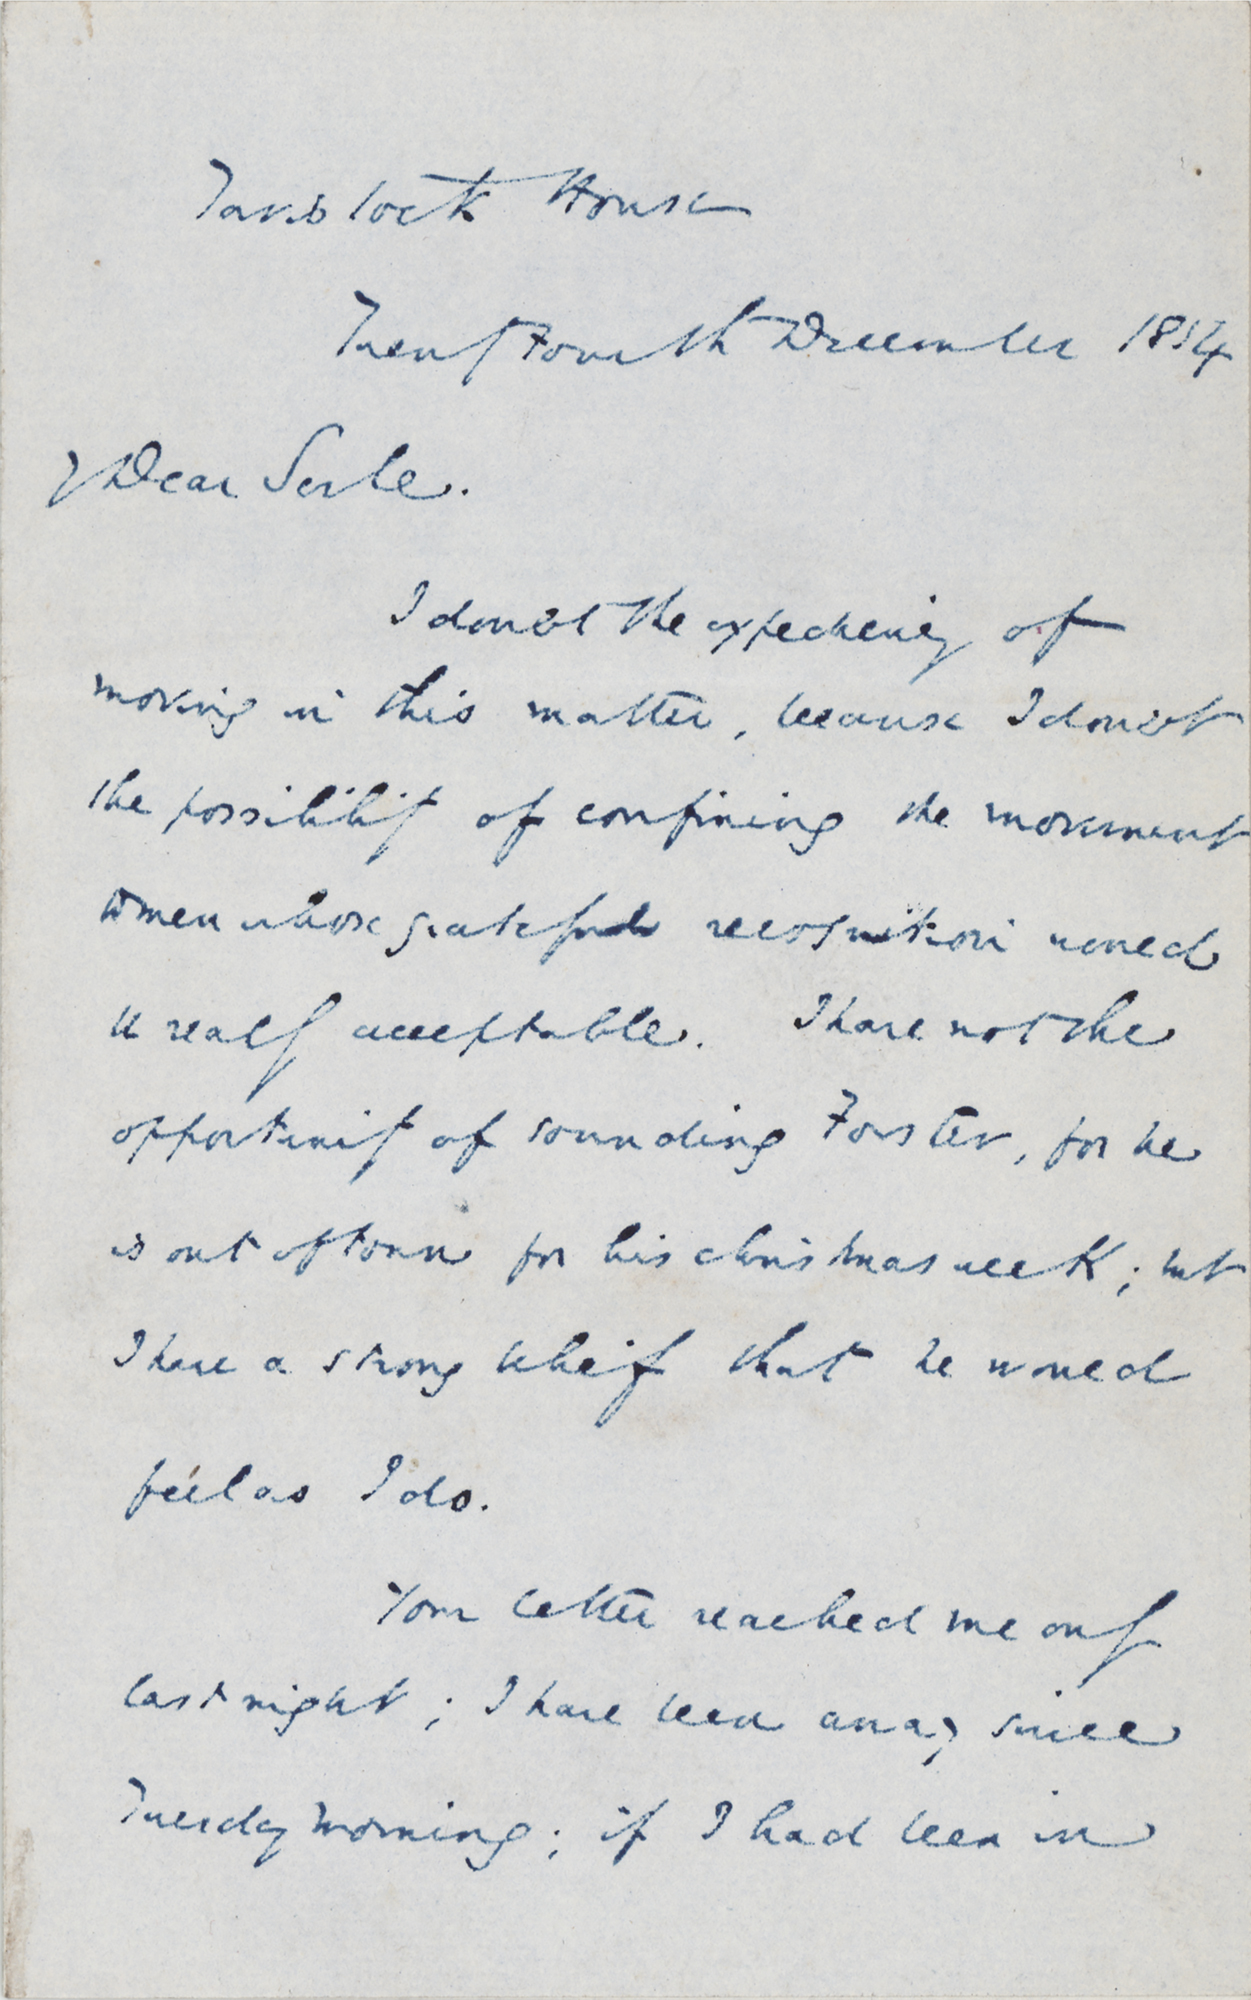 Tavistock House
Twenty Fourth December 1854
My Dear Serle.
I doubt the expediency of
moving in this matter, because I doubt
the possibility of confining the movement
to men whose grateful recognition would
be really acceptable. I have not the
opportunity of sounding Forster, for he
is out of town for his christmas week; but
I have a strong belief that he would
feel as I do.
Your letter reached me only
last night; I have been away since
Tuesday Morning; if I had been in